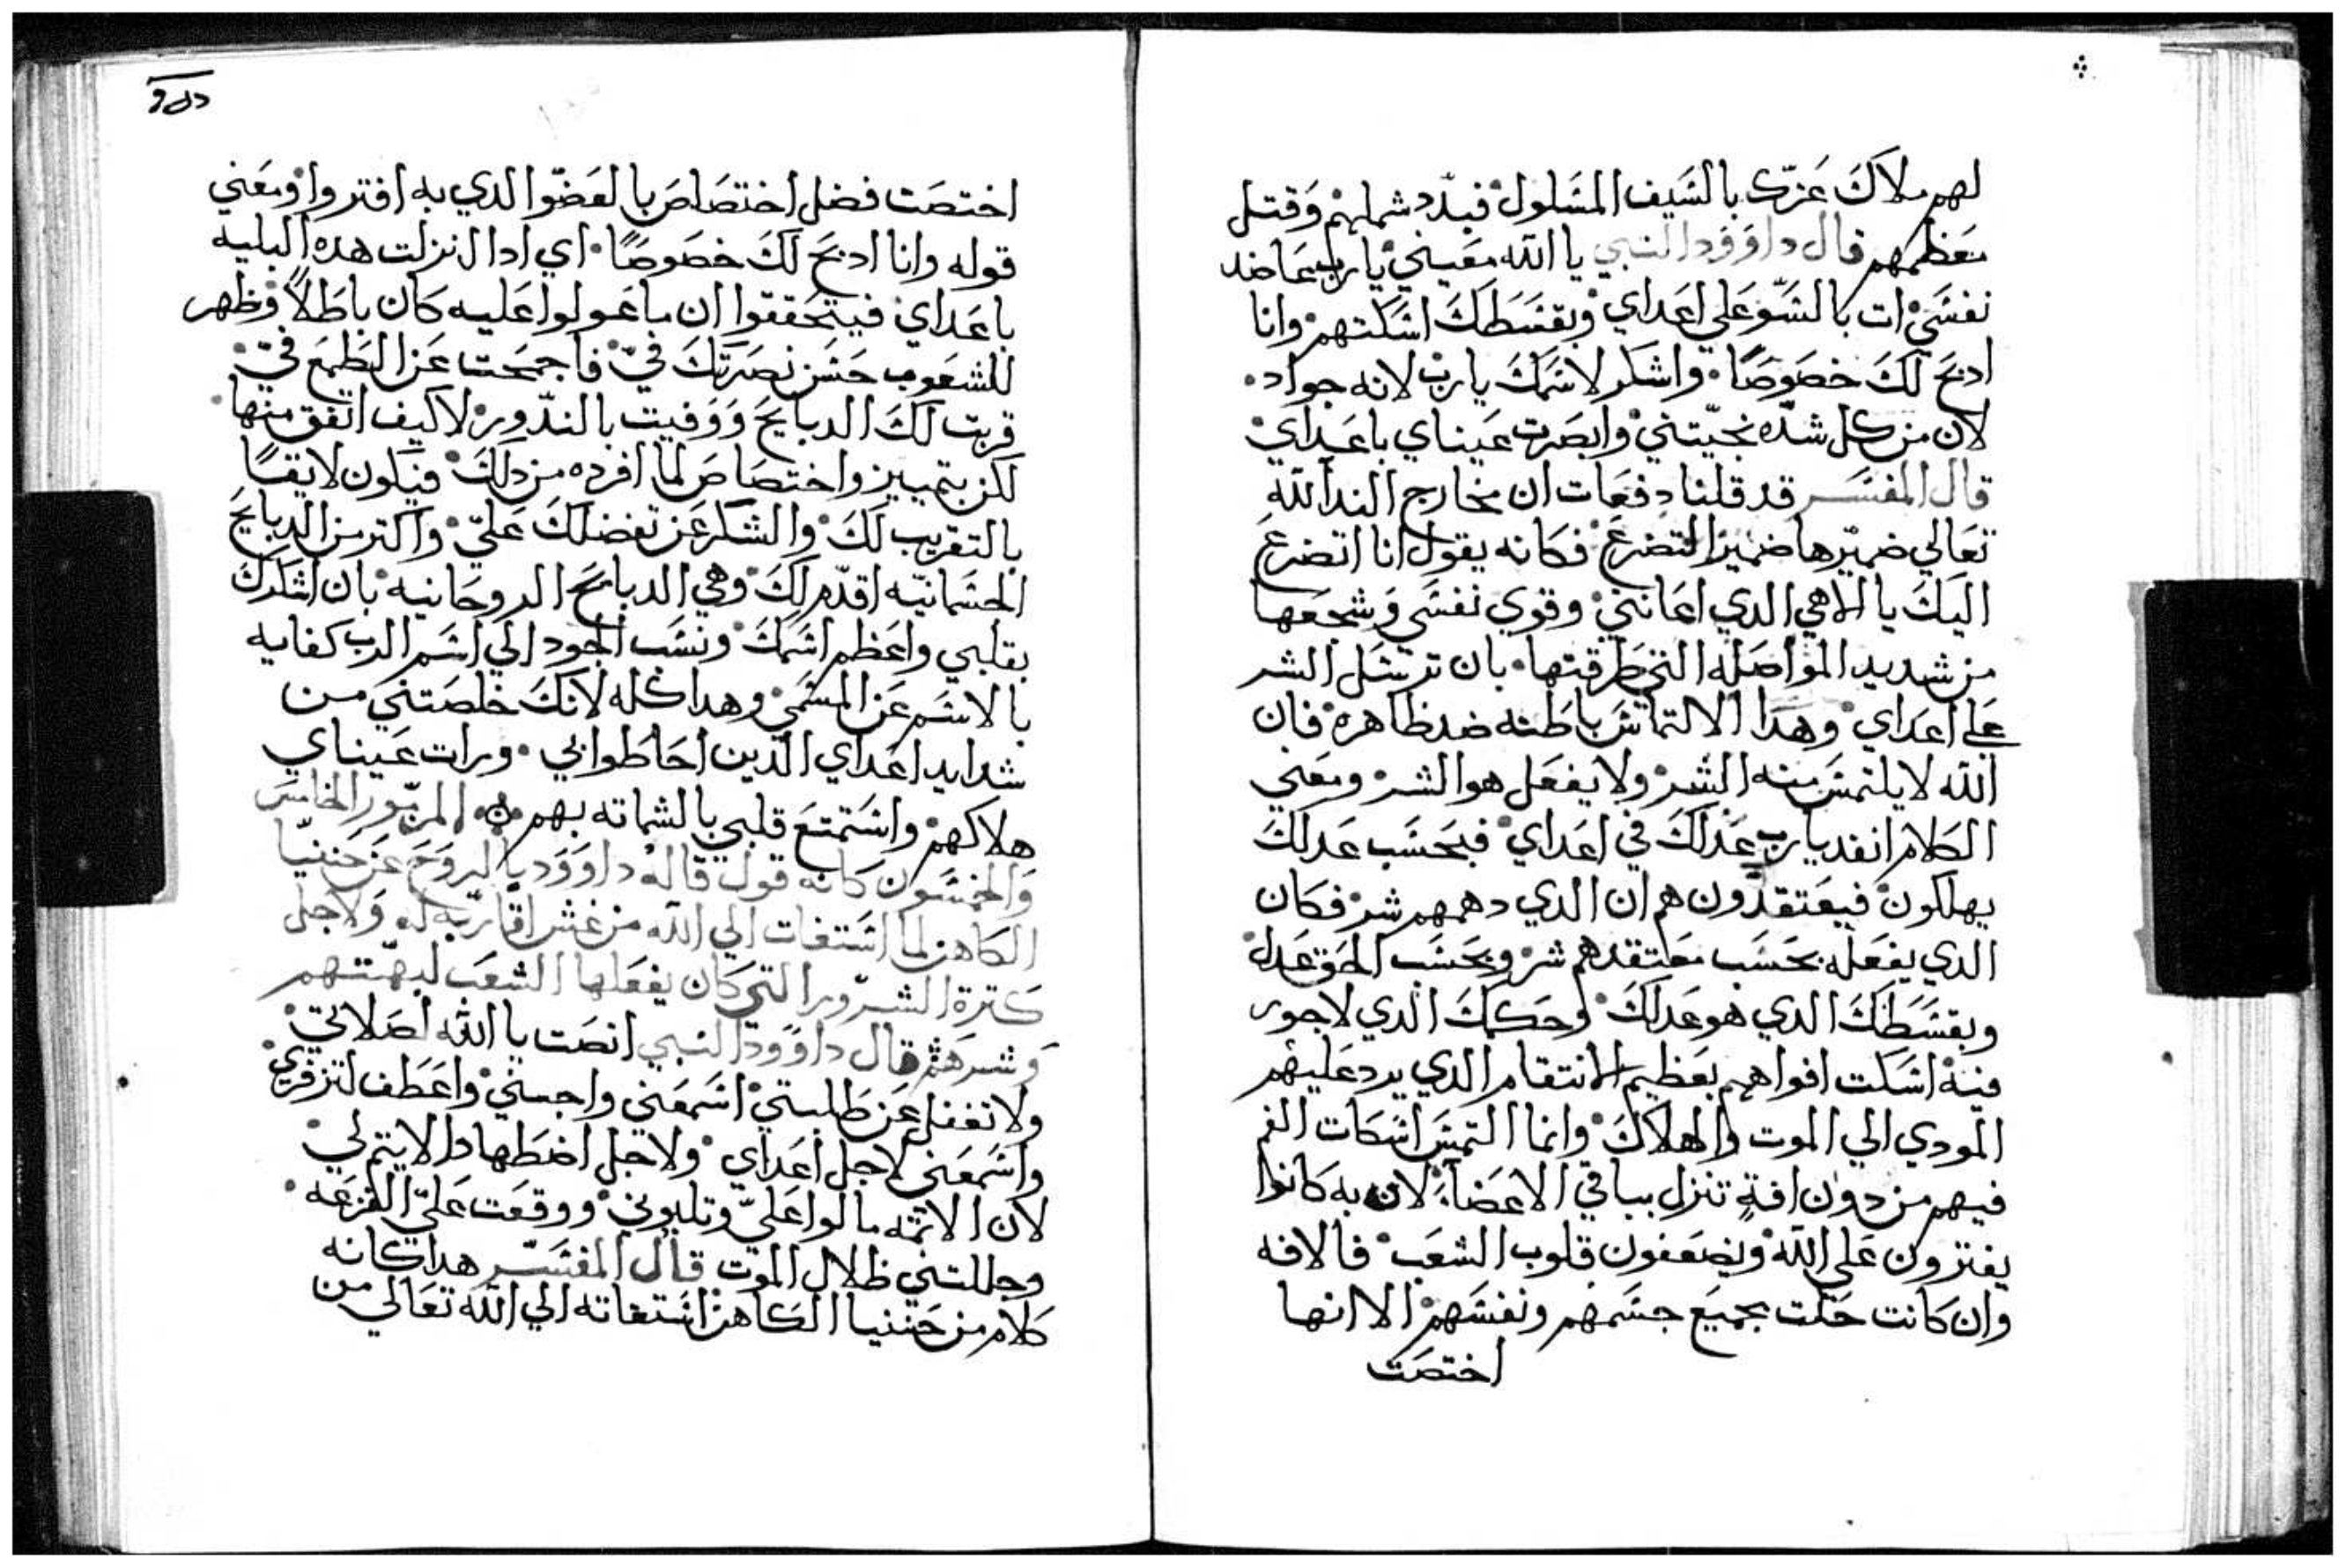 لهم ملاك عزك بالسيف المسلول فبدد شملهم وقتل
معظمهم قال داوود النبي يا الله معيني يا رب عاضد
نفسي ات بالسو علي اعداي وبقسطك اسكتهم وانا
ادبح لك خصوصا واشكر لاسمك يا رب لانه جواد
لان من كل شده نجيتني وابصرت عيناي باعداي
قال المفسر قد قلنا دفعات ان مخارج الندا لله
تعالي ضميرها ضمير التضرع فكانه يقول انا اتضرع
اليك يا الاهي الدي اعانني وقوي نفسي وشجعها
من شديد المواصله التي طرقتها بان ترسل الشر
علي اعداي وهدا الالتماس باطنه ضد ظاهره فان
الله لا يلتمس منه الشر ولا يفعل هو الشر ومعني
الكلام انفد يا رب عدلك في اعداي فبحسب عدلك
يهلكون فيعتقدون هم ان الدي دهمهم شر فكان
الدي يفعله بحسب معتقدهم شر وبحسب الحق عدل
وبقسطك الدي هو عدلك وحكمك الدي لا جور
فيه اسكت افواههم بعظيم الانتقام الدي يرد عليهم
المودي الي الموت والهلاك وانما التمس اسكات الفم
فيهم من دون افة تنزل بباقي الاعضاء لان به كانوا
يفترون علي الله ويضعفون قلوب الشعب فالافه
وان كانت حلت بجميع جسمهم ونفسهم الا انها
اختصت
اختصت فضل اختصاص بالعضوا الدي به افتروا ومعني
قوله وانا ادبح لك خصوصا اي ادا نزلت هده البليه
باعداي فيتحققوا ان ما عولوا عليه كان باطلا وظهر
للشعوب حسن نصرتك في فاجمحت عن الطمع في
قربت لك الدبايح ووفيت بالندور لا كيف اتفق منها
لكن بتمييز واختصاص لما افرده من دلك فيكون لايقا
بالتقريب لك والشكر عن تفضلك علي واكتر من الدبايح
الجسمانيه اقدم لك وهي الدبايح الروحانيه بان اشكرك
بقلبي واعظم اسمك ونسب الجود الي اسم الرب كفايه
بالاسم عن المسمي وهدا كله لانك خلصتني من
شدايد اعداي الدين احاطوا بي ورات عيناي
هلاكهم واستمتع قلبي بالشماته بهم المزمور الخامس
والخمسون كانه قول قاله داوود بالروح عن حننيا
الكاهن لما استغات الي الله من غش اقاربه له ولاجل
كترة الشرور التي كان يفعلها الشعب لبهتتهم
وشرهم قال داوود النبي انصت يا الله لصلاتي
ولا تغفل عن طلبتي اسمعني واجبني واعطف لتزفري
واسمعني لاجل اعداي ولاجل اضطهاد الايتم لي
لان الاتمه مالوا علي وتلبوني ووقعت علي الفزعه
وجللتني ظلال الموت قال المفسر هدا كانه
كلام من حننيا الكاهن استغاته الي الله تعالي من